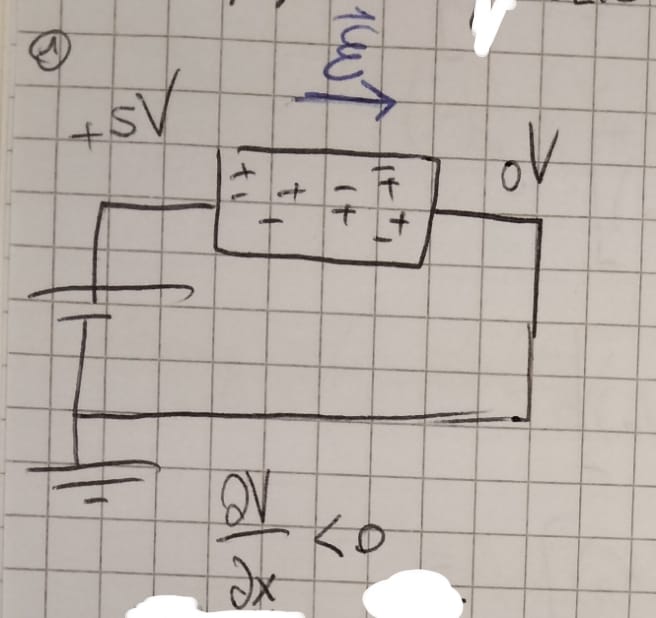 ①
ε
+5V
0V
+ + - -
- - + + - +
∂V/∂x < 0